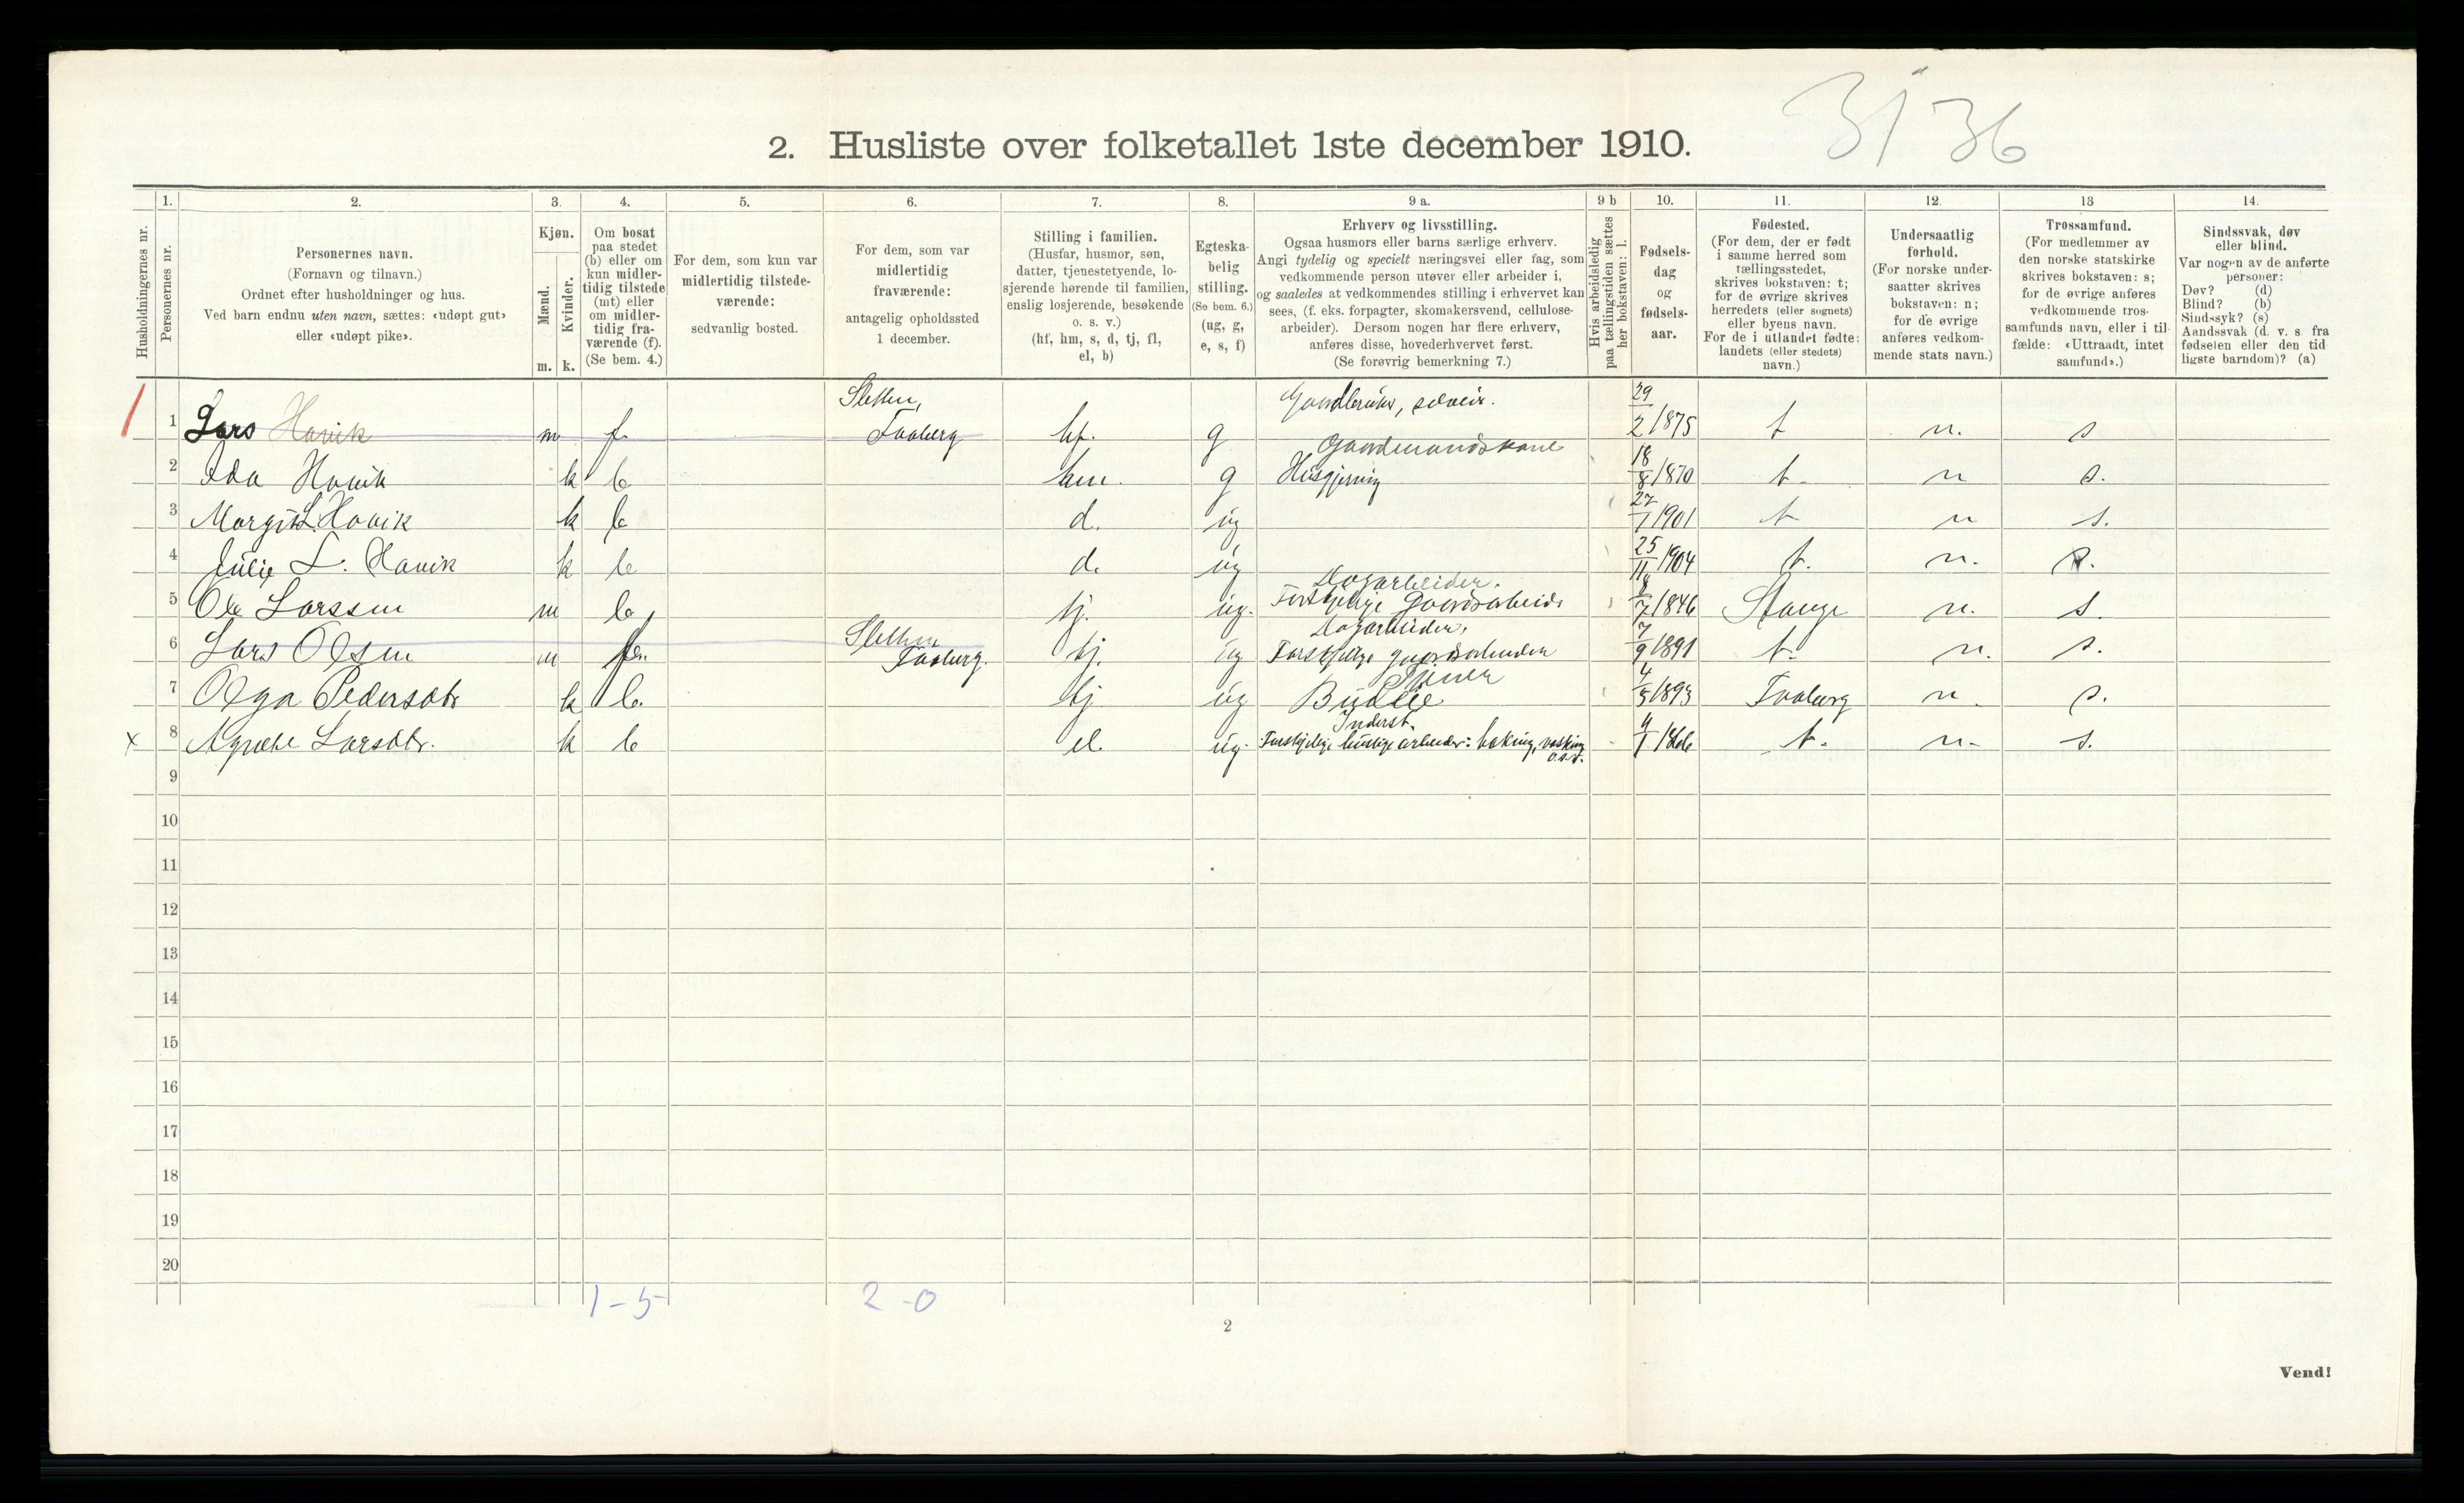 31 36
2. Husliste over folketallet 1ste december 1910.
1. 2. 3. 4. 5. 6. 7. 8. 9 a. 9 b 10. 11. 12. 13 14.
Husholdningernes nr.
Personernes nr.
Personernes navn.
(Fornavn og tilnavn.)
Ordnet efter husholdninger og hus.
Ved barn endnu uten navn, sættes: «udøpt gut»
eller «udøpt pike».
Kjøn.
Mænd.
Kvinder.
m. k.
Om bosat
paa stedet
(b) eller om
kun midler-
tidig tilstede
(mt) eller
om midler-
tidig fra-
værende (f).
(Se bem. 4.)
For dem, som kun var
midlertidig tilstede-
værende:
sedvanlig bosted.
For dem, som var
midlertidig
fraværende:
antagelig opholdssted
1 december.
Stilling i familien.
(Husfar, husmor, søn,
datter, tjenestetyende, lo-
sjerende hørende til familien,
enslig losjerende, besøkende
o. s. v.)
(hf, hm, s, d, tj, fl,
el, b)
Egteska-
belig
stilling.
(Se bem. 6.)
(ug, g,
e, s, f)
Erhverv og livsstilling.
Ogsaa husmors eller barns særlige erhverv.
Angi tydelig og specielt næringsvei eller fag, som
vedkommende person utøver eller arbeider i,
og saaledes at vedkommendes stilling i erhvervet kan
sees, (f. eks. forpagter, skomakersvend, cellulose-
arbeider). Dersom nogen har flere erhverv,
anføres disse, hovederhvervet først.
(Se forøvrig bemerkning 7.)
Hvis arbeidsledig
paa tællingstiden sættes
her bokstaven: l.
Fødsels-
dag
og
fødsels-
aar.
Fødested.
(For dem, der er født
i samme herred som
tællingsstedet,
skrives bokstaven: t;
for de øvrige skrives
herredets (eller sognets)
eller byens navn.
For de i utlandet fødte:
landets (eller stedets)
navn.)
Undersaatlig
forhold.
(For norske under-
saatter skrives
bokstaven: n;
for de øvrige
anføres vedkom-
mende stats navn.)
Trossamfund.
(For medlemmer av
den norske statskirke
skrives bokstaven: s;
for de øvrige anføres
vedkommende tros-
samfunds navn, eller i til-
fælde: «Uttraadt, intet
samfund».)
Sindssvak, døv
eller blind.
Var nogen av de anførte
personer:
Døv? (d)
Blind? (b)
Sindssyk? (s)
Aandssvak (d. v. s. fra
fødselen eller den tid-
ligste barndom)? (a)
1 1 Lars Havik m f. Faaberg hf. g Gaardbruker, selveier. 29/2 1875 t n. s
2 Ida Havik k b hm. g Gaardmandskone Husgjerning 18/8 1870 t. n s.
3 Margit L. Havik k b d. ug 27/1 1901 t n s.
4 Julie L. Havik k b d. ug 25/11 1904 t. n. s.
5 Ole Larssen m b tj. ug. Dagarbeider. Forskjellige Gaardsarbeide 1846 Stange n. s.
6 Lars Olsen m f. Faaberg. tj. ug Dagarbeider. Forskjellige gaardsarbeider 7/9 1891 t. n. s.
7 Olga Pedersdtr k b. tj ug Budeie 4/5 1893 Faaberg n. s.
x 8 Agnete Larsdtr. k b el. ug. Inderst. Forskjellige huslige arbeider: baking, vasking o.s.v. t. n. s.
9
10
11
12
13
14
15
16
17
18
19
20
1-5 2-0
2
Vend!